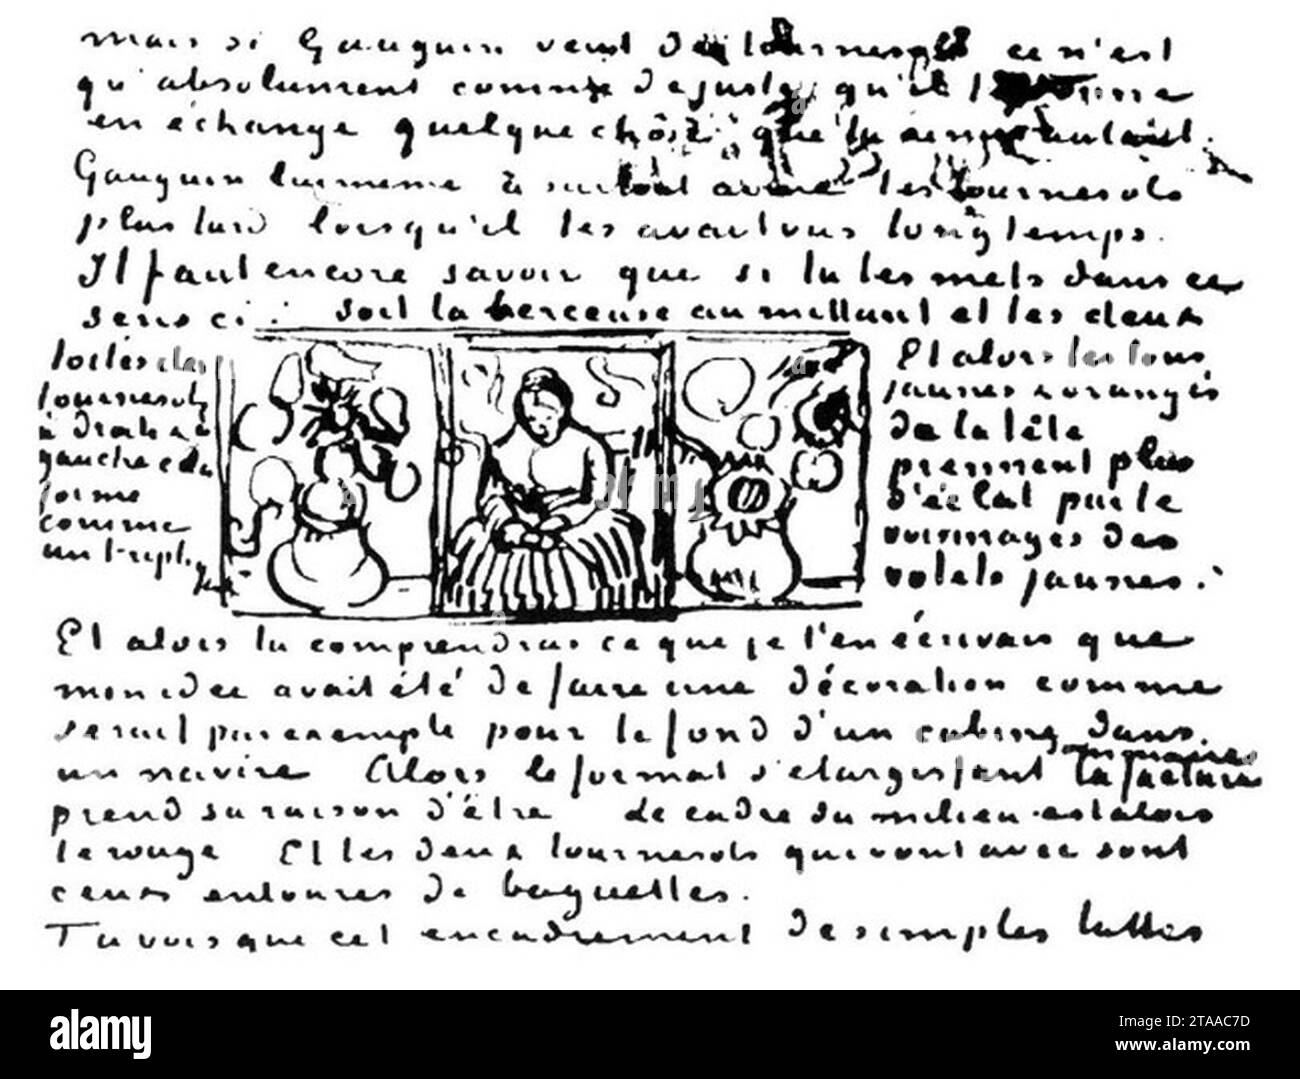 mais si Gauguin veut des tournesols ce n'est
qu'absolument comme de juste qu'il te donne
en échange quelque chose que tu aimes autant.
Gauguin lui même a surtout aimé les tournesols
plus tard lorsqu'il les avait vus longtemps.
Il faut encore savoir que si tu les mets dans ce
sens ci: soit la berceuse au millieu et les deux
toiles des
tournesols
à droite &
gauche cela
forme
comme
un triptyque
Et alors les tons
jaunes & orangés
de la tête
prennent plus
d'éclat par le
voisinages des
volets jaunes.
Et alors tu comprendras ce que je t'en écrivais que
mon idée avait été de faire une décoration comme
serait par exemple pour le fond d'un cabine dans
un navire Alors le format s'élargissant la facture
sommaire
prend sa raison d'être le cadre du milieu est alors
le rouge Et les deux tournesols qui vont avec sont
ceux entourés de baguettes.
Tu vois que cet encadrement de simples lattes
alamy
alamy
Image ID: 2TAAC7D
www.alamy.com